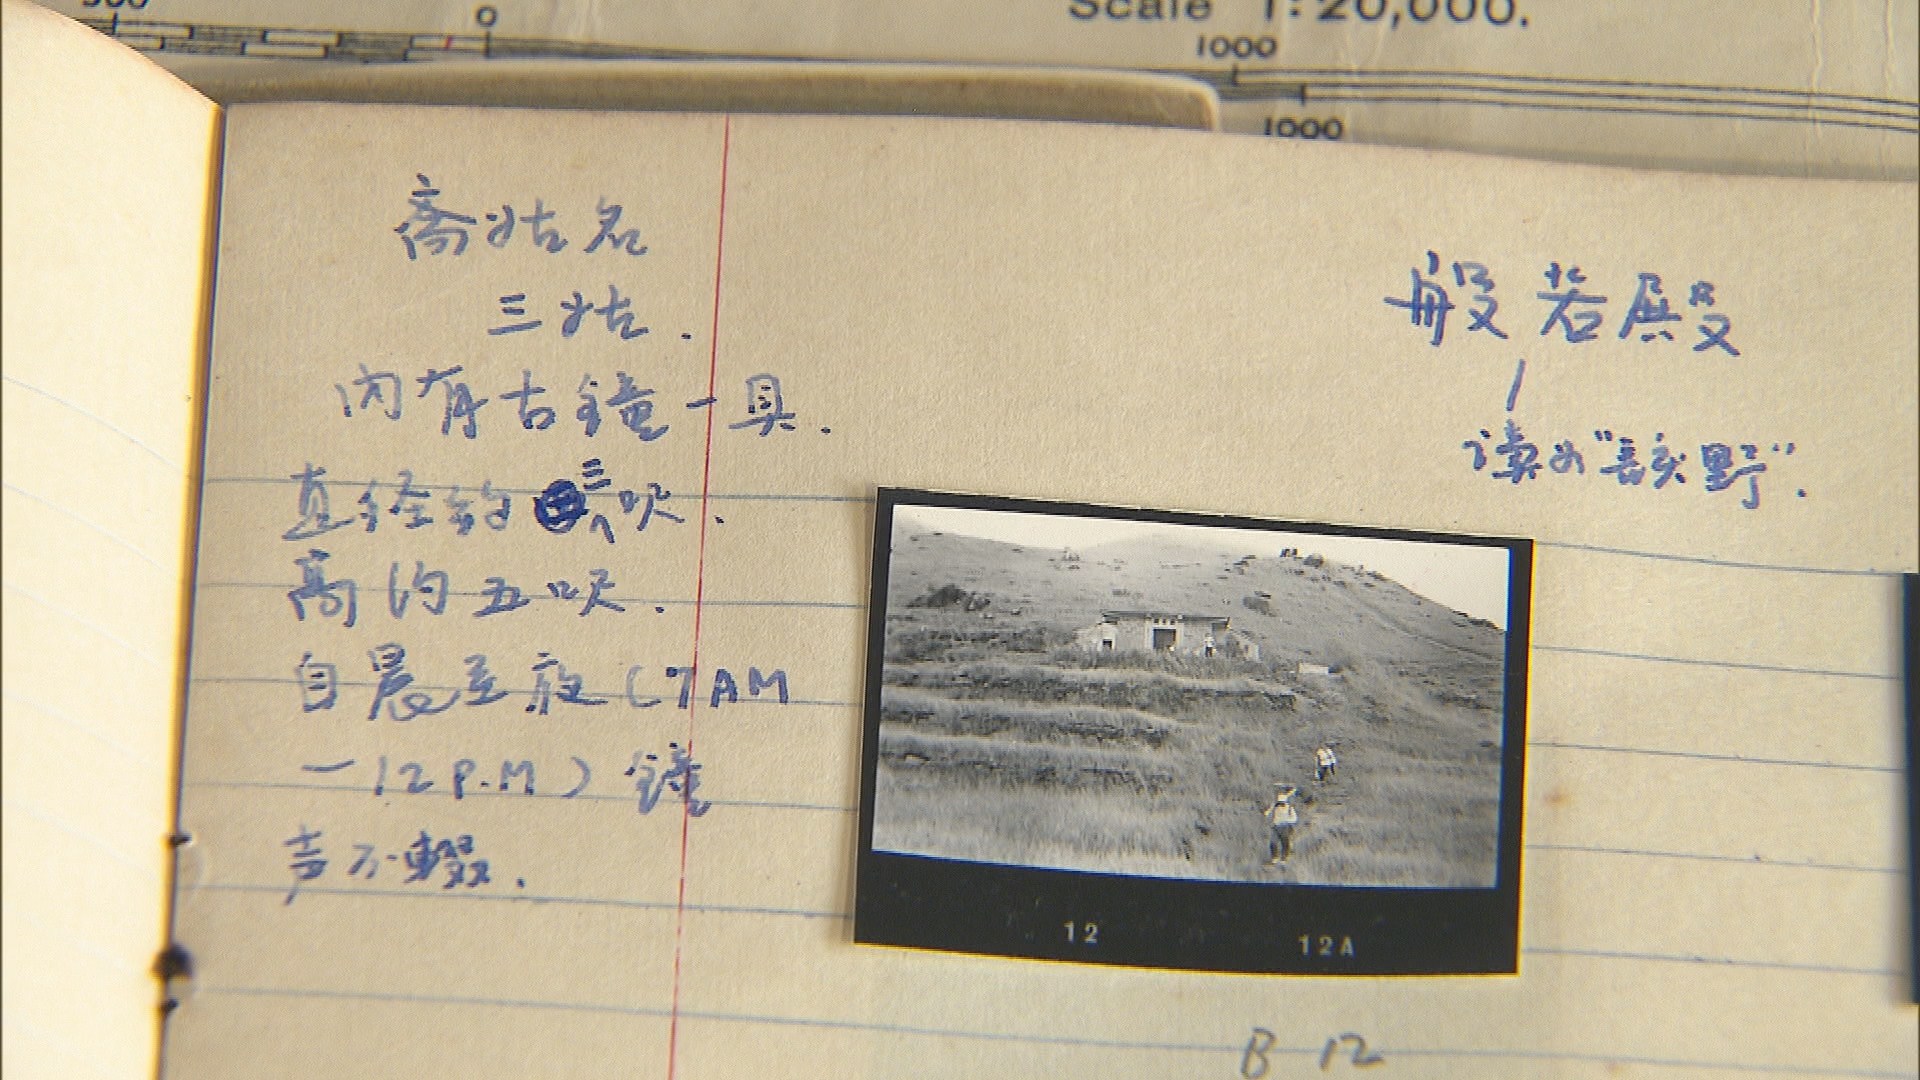 0
Scale 1:20,000.
1000
1000
斋姑名
三姑.
内有古鐘一具.
直径約三呎.
高约五呎.
自晨至夜(7AM
—12 P.M) 鐘
声不輟.
般若殿
读为"該野".
12 12A
B 12